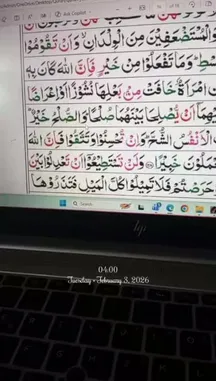 Ask Copilot
وَالْمُسْتَضْعَفِيْنَ مِنَ الْوِلْدَانِ ۙ وَاَنْ تَقُوْمُوْا
وَمَا تَفْعَلُوْا مِنْ خَيْرٍ فَاِنَّ اللّٰهَ كَانَ بِهٖ
امْرَاَةٌ خَافَتْ مِنْۢ بَعْلِهَا نُشُوْزًا اَوْ اِعْرَاضًا
اَنْ يُّصْلِحَا بَيْنَهُمَا صُلْحًا ؕ وَالصُّلْحُ خَيْرٌ
الْاَنْفُسُ الشُّحَّ ؕ وَاِنْ تُحْسِنُوْا وَتَتَّقُوْا فَاِنَّ اللّٰهَ
خَبِيْرًا وَلَنْ تَسْتَطِيْعُوْۤا اَنْ تَعْدِلُوْا بَيْنَ
حَرَصْتُمْ فَلَا تَمِيْلُوْا كُلَّ الْمَيْلِ فَتَذَرُوْهَا
Search
hp
04:00
Tuesday • February 3, 2026